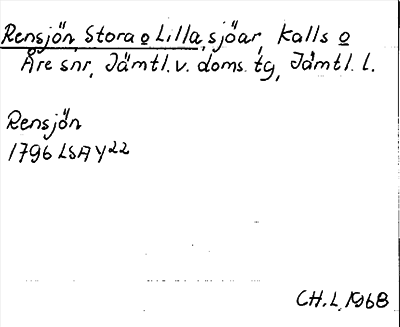 Rensjön, Stora o Lilla, sjöar, Kalls o
Åre snr, Jämtl. v. doms. tg, Jämtl. l.
Rensjön
1796 LSA Y22
CH.L. 1968